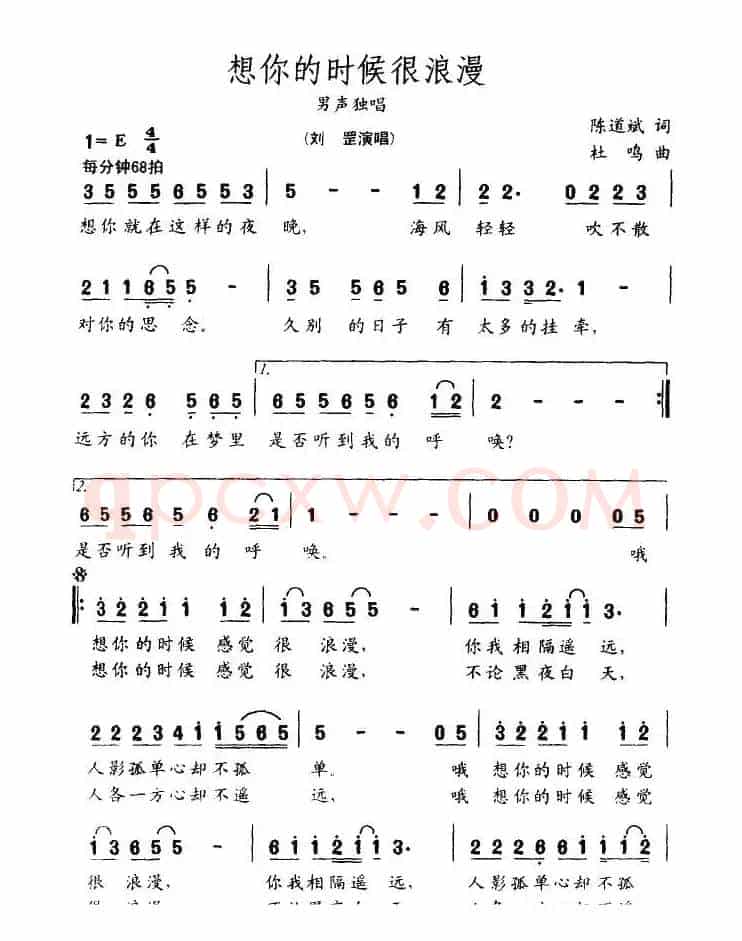 想你的时候很浪漫
男声独唱
1=E 4/4
(刘 罡演唱)
陈道斌 词
杜 鸣 曲
每分钟68拍
3 5 5 5 6 5 5 3 | 5 - - 1 2 | 2 2· 0 2 2 3 |
想你就在这样的夜 晚, 海风 轻轻 吹不散
2 1 1 6 5 5 - | 3 5 5 6 5 6 | 1 3 3 2· 1 - |
对你的思 念。 久别 的日子 有 太多的挂 牵,
1.
2 3 2 6 5 6 5 | 6 5 5 6 5 6 1 2 | 2 - - - :||
远方的你 在梦里 是否听到我的 呼 唤?
qpcxw.COM
2.
6 5 5 6 5 6 2 1 | 1 - - - | 0 0 0 0 5 |
是否听到 我 的 呼 唤。 哦
||: 3 2 2 1 1 1 2 | 1 3 6 5 5 - | 6 1 1 2 1 1 3· |
想你的时候 感觉 很 浪漫, 你我相隔遥 远,
想你的时候 感觉 很 浪漫, 不论黑夜白 天,
2 2 2 3 4 1 1 1 5 6 5 | 5 - - 0 5 | 3 2 2 1 1 1 2 |
人影孤单心却不孤 单。 哦 想你的时候 感觉
人各一方心却不遥 远, 哦 想你的时候 感觉
1 3 6 5 5 - | 6 1 1 2 1 1 3· | 2 2 2 6 6 1 2 1 1 |
很 浪漫, 你我相隔遥 远, 人影孤单心却不孤